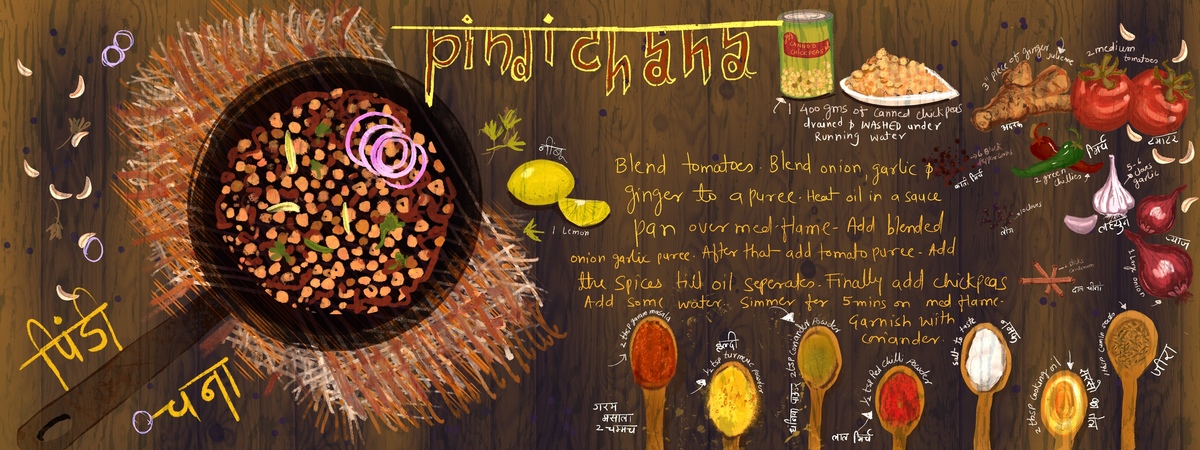 pindi chana
CANNED
CHICKPEAS
400 gms of canned chickpeas
drained & WASHED under
Running water
3" piece of ginger julienne
अदरक
2 medium
tomatoes
टमाटर
6 Black
peppercorns
काली मिर्च
मिर्च
2 green
chillies
5-6
cloves
garlic
लहसुन
लौंग
प्याज
1 large onion
नींबू
1 Lemon
Blend tomatoes. Blend onion, garlic &
ginger to a puree. Heat oil in a sauce
pan over med-flame - Add blended
onion garlic puree. After that add tomato puree - Add
the spices till oil seperates. Finally add chickpeas
Add some water. Simmer for 5 mins on med flame.
Garnish with
coriander.
पिंडी
चना
2 tbsp garam masala
गरम
मसाला
2 चम्मच
हल्दी
1/2 tsp turmeric powder
2 tsp Coriander Powder
धनिया पाउडर
1/2 tsp Red chilli powder
लाल मिर्च
Salt to taste
नमक
2 tbsp Cooking oil
सरसों का तेल
जीरा